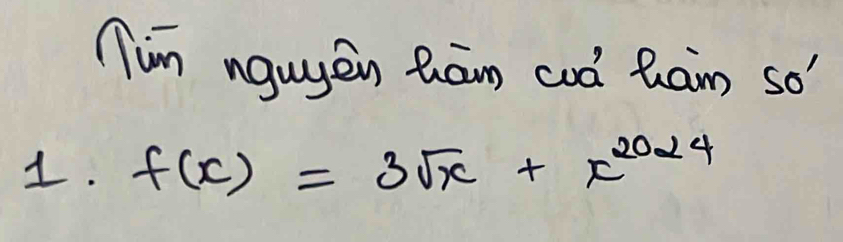 Tìm nguyên hàm cuả hàm số
1. f(x) = 3√x + x^2024